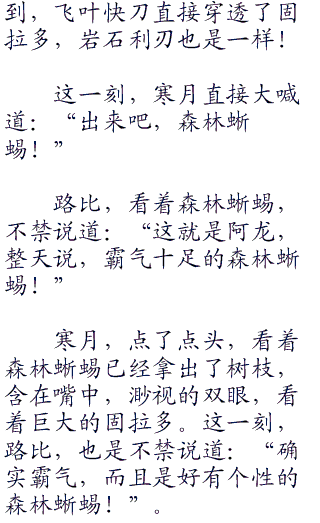 到，飞叶快刀直接穿透了固
拉多，岩石利刃也是一样！
这一刻，寒月直接大喊
道：“出来吧，森林蜥
蜴！”
路比，看着森林蜥蜴，
不禁说道：“这就是阿龙，
整天说，霸气十足的森林蜥
蜴！”
寒月，点了点头，看着
森林蜥蜴已经拿出了树枝，
含在嘴中，渺视的双眼，看
着巨大的固拉多。这一刻，
路比，也是不禁说道：“确
实霸气，而且是好有个性的
森林蜥蜴！”。